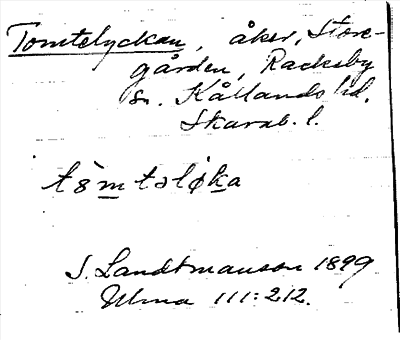 Tomtelyckan, åker, Store-
gården, Racksby
sn. Kållands hd.
Skarab. l.
tömtəløka
S. Landtmanson 1899
Ulma 111:212.